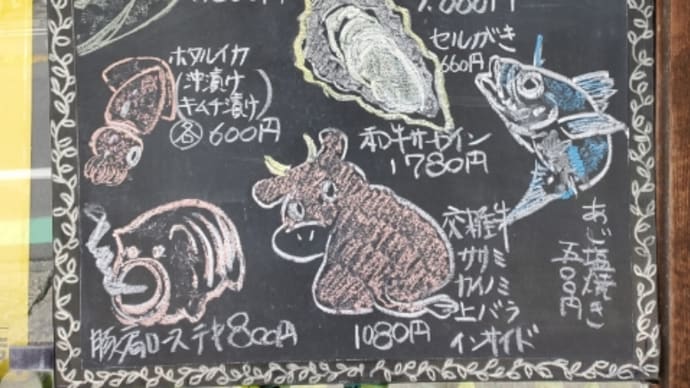 ホタルイカ
(沖漬け
キムチ漬け)
各600円
セルがき
660円
和牛サーロイン
1780円
あじ塩焼き
五00円
交雑牛
ササミ
カイノミ
上バラ
インサイド
1080円
豚肩ロースステキ800円